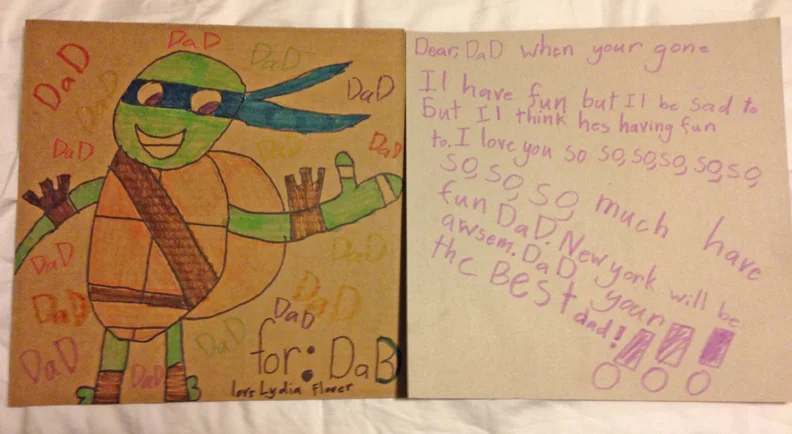 DaD
DaD
DaD
DaD
DaD
DaD
DaD
DaD
DaD
DaD
DaD
DaD
DaD
DaD
DaD
DaD
DaD
for: DaD
love Lydia Flower
Dear, DaD when your gone
Il have fun but Il be sad to
but Il think hes having fun
to. I love you so so, so, so, so, so,
so, so, so, much have
fun DaD. New york will be
awsem. DaD your
the BEST dad!!!!